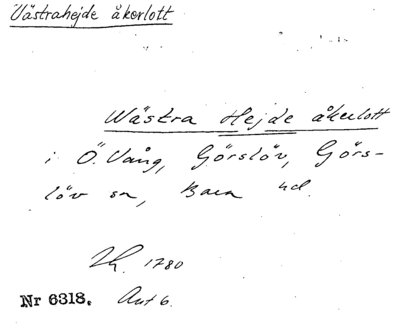 Västrahejde åkerlott
Wästra Hejde åkerlott
i Ö. Vång, Görslöv, Görs-
löv sn, Bara hd.
1780
Nr 6318. Akt 6.